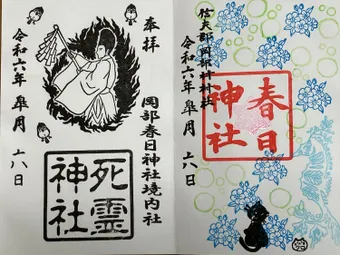 奉拝
岡部春日神社境内社
死霊神社
令和六年 皐月 六日
信夫郡岡部村村社
春日神社
令和六年 皐月 六日